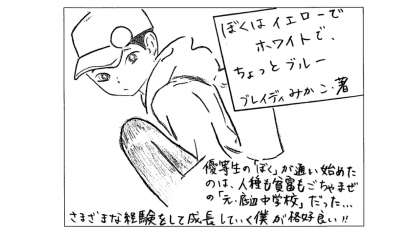 ぼくはイエローで
ホワイトで、
ちょっとブルー
ブレイディみかこ・著
優等生の「ぼく」が通い始めた
のは、人種も貧富もごちゃまぜ
の「元・底辺中学校」だった…
さまざまな経験をして成長していく僕が格好良い!!